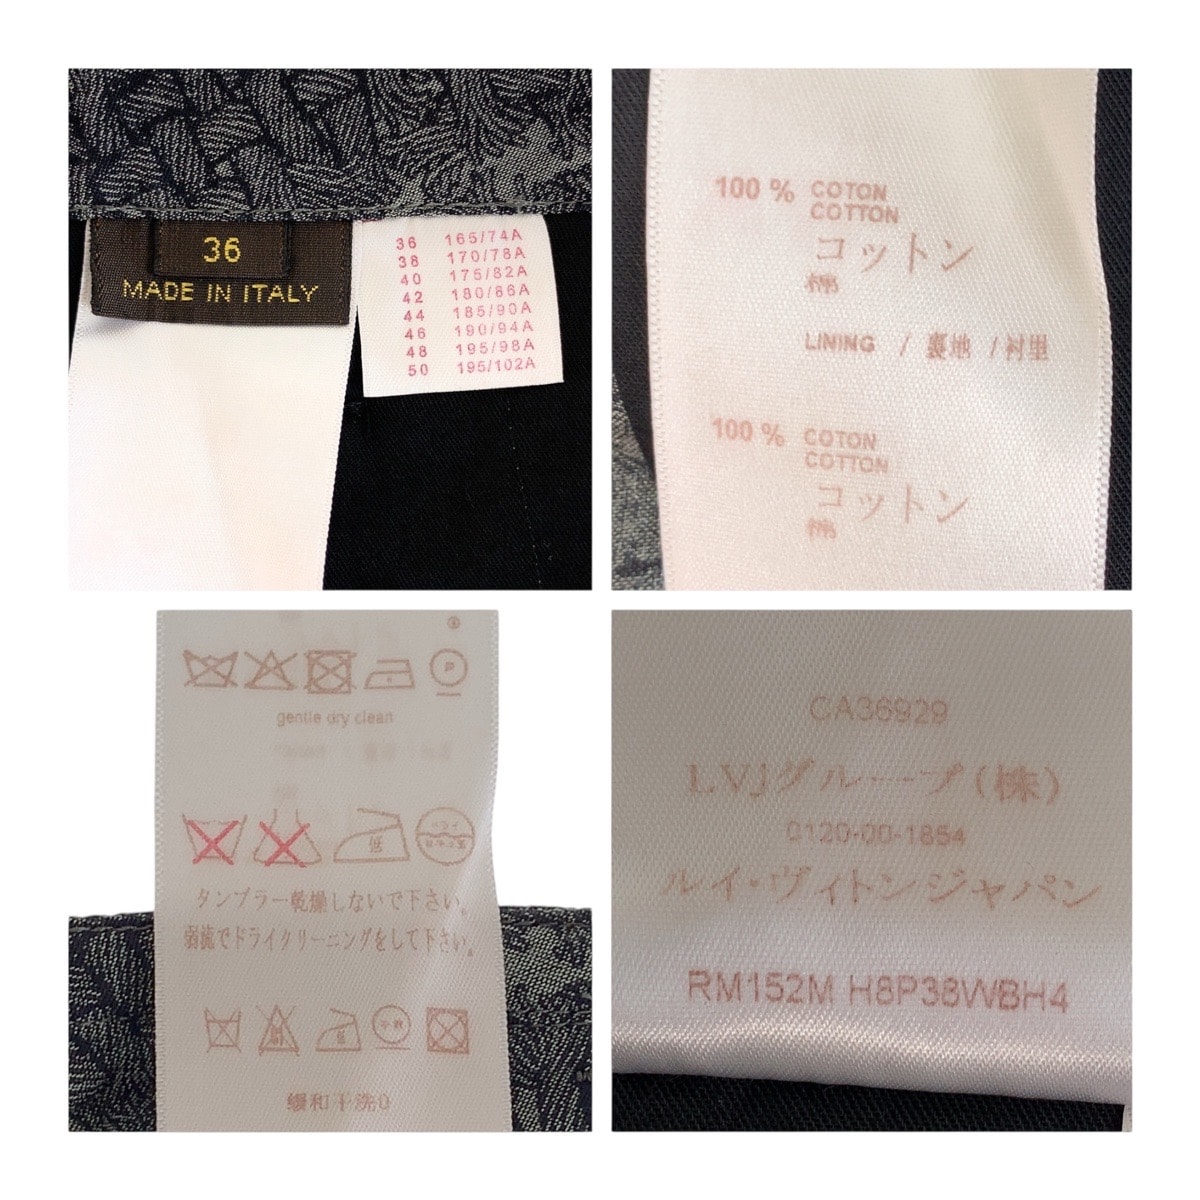 36
MADE IN ITALY
36 165/74A
38 170/78A
40 175/82A
42 180/86A
44 185/90A
46 190/94A
48 195/98A
50 195/102A
100 % COTON
COTTON
コットン
棉
LINING / 裏地 / 衬里
100 % COTON
COTTON
コットン
棉
P
gentle dry clean
タンブラー乾燥しないで下さい。
弱流でドライクリーニングをして下さい。
缓和干洗
CA36929
LVJグループ(株)
0120-00-1854
ルイ・ヴィトンジャパン
RM152M H8P38WBH4